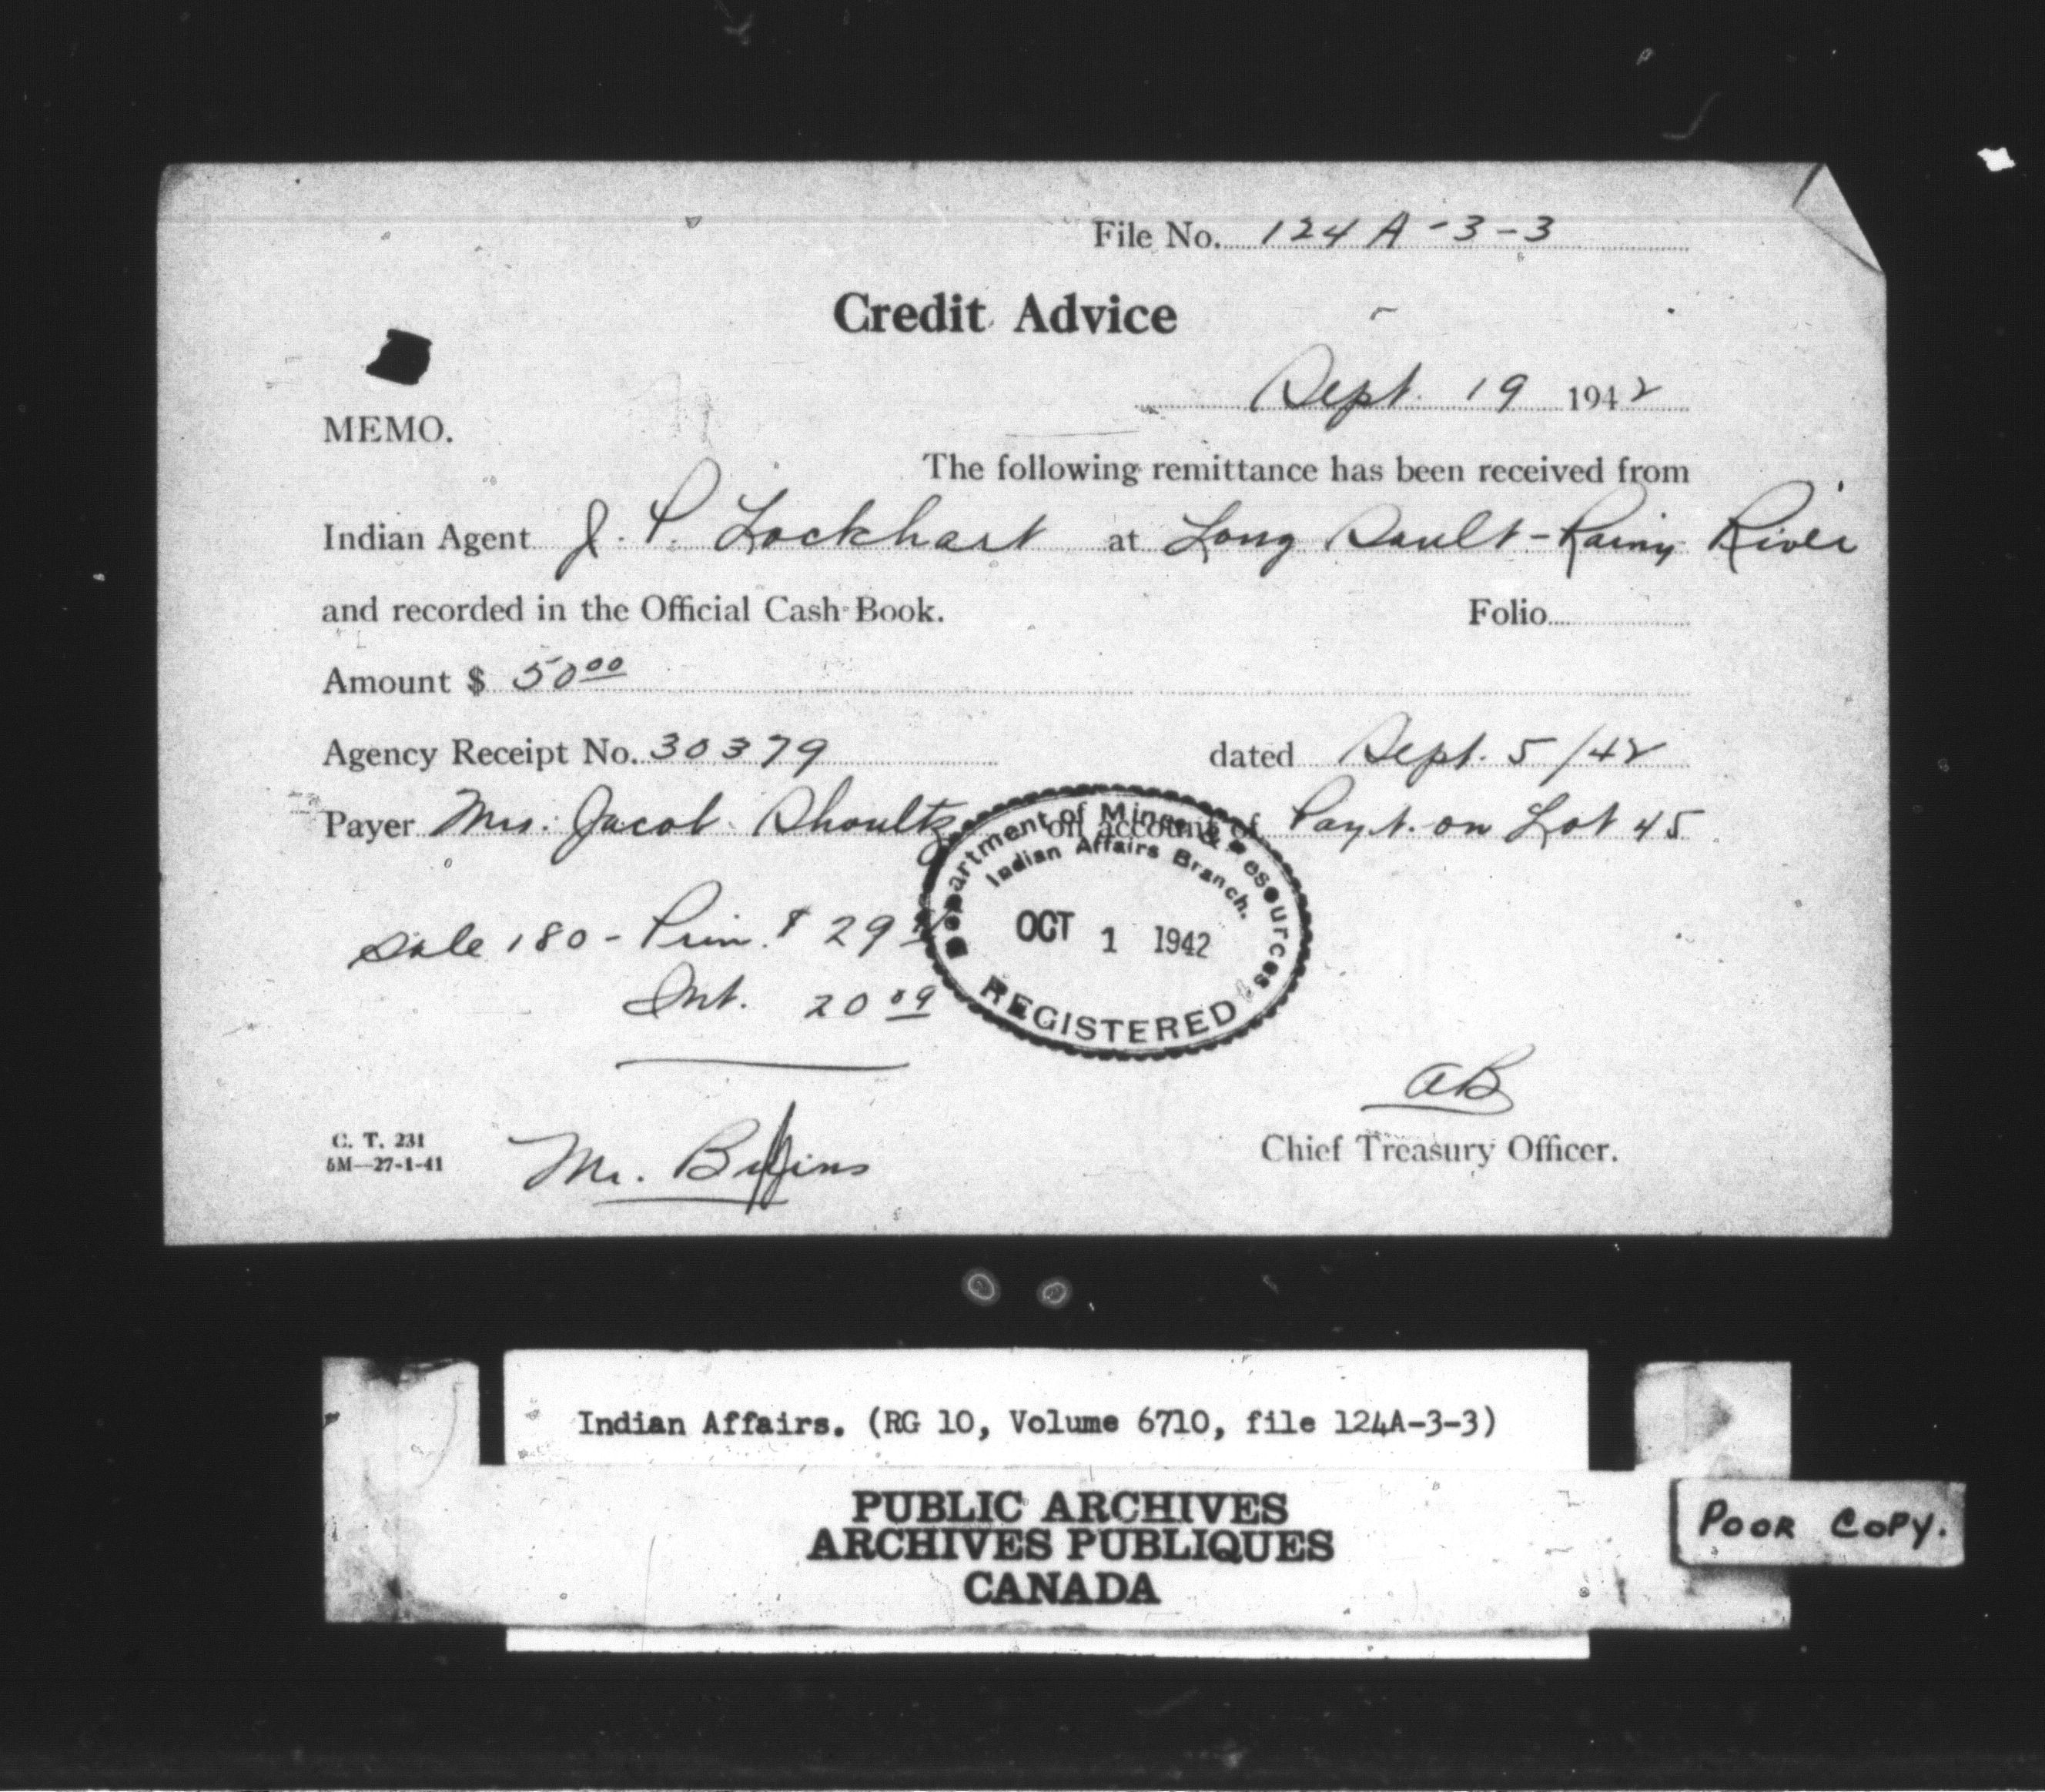 File No. 124 A-3-3
Credit Advice
Sept. 19 1942
MEMO.
The following remittance has been received from
Indian Agent J. P. Lockhart at Long Sault-Rainy River
and recorded in the Official Cash Book. Folio
Amount $ 50 00
Agency Receipt No. 30379 dated Sept. 5/42
Payer Mrs. Jacob Shoultz on account of Payt. on Lot 45
Department of Mines & Resources
Indian Affairs Branch.
OCT 1 1942
REGISTERED
Sale 180 - Prin. $ 29
Int. 20 09
AB
Chief Treasury Officer.
C. T. 231
5M-27-1-41
Mr.
Indian Affairs. (RG 10, Volume 6710, file 124A-3-3)
PUBLIC ARCHIVES
ARCHIVES PUBLIQUES
CANADA
POOR COPY.